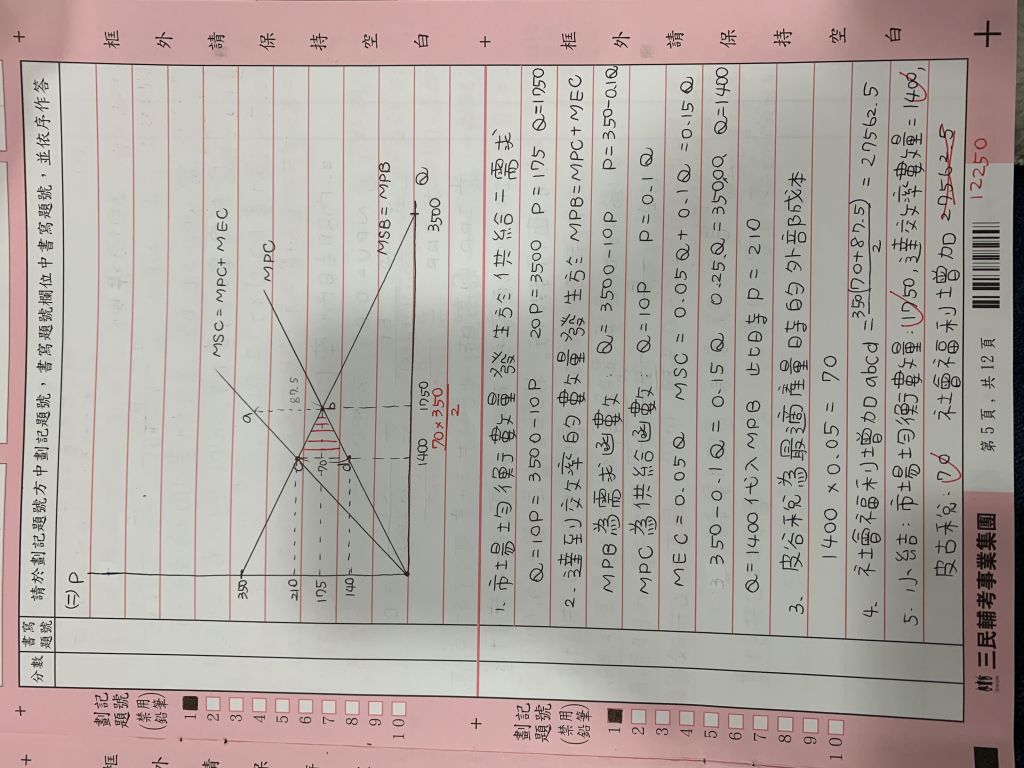 框 外 請 保 持 空 白
分數
書寫題號
請於劃記題號方中劃記題號，書寫題號欄位中書寫題號，並依序作答
(二) P
350
210
175
140
MSC=MPC+MEC
MPC
MSB=MPB
a
b
c
d
87.5
70
1400
1750
3500
Q
70×350
2
1. 市場均衡數量發生於供給=需求
Q=10P=3500-10P 20P=3500 P=175 Q=1750
2. 達到效率的數量發生於 MPB=MPC+MEC
MPB為需求函數: Q=3500-10P P=350-0.1Q
MPC為供給函數: Q=10P P=0.1Q
MEC=0.05Q MSC=0.05Q+0.1Q=0.15Q
350-0.1Q=0.15Q 0.25Q=350 Q=1400
Q=1400代入MPB 此時P=210
3. 皮谷稅為最適產量時的外部成本
1400×0.05=70
4. 社會福利增加abcd=350(70+87.5)/2=27562.5
5. 小結:市場均衡數量:1750,達效率數量=1400,
皮古稅:70 社會福利增加27562.5
12250
劃記題號
(禁用鉛筆)
1
2
3
4
5
6
7
8
9
10
劃記題號
(禁用鉛筆)
1
2
3
4
5
6
7
8
9
10
框 外 請 保 持 空 白
三民輔考事業集團
第5頁，共12頁